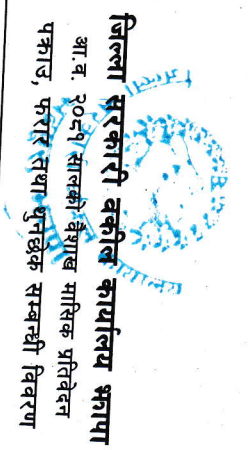 जिल्ला सरकारी वकील कार्यालय झापा
आ.व. २०८१ सालको बैशाख मासिक प्रतिवेदन
पक्राउ, फरार तथा थुनछेक सम्बन्धी विवरण